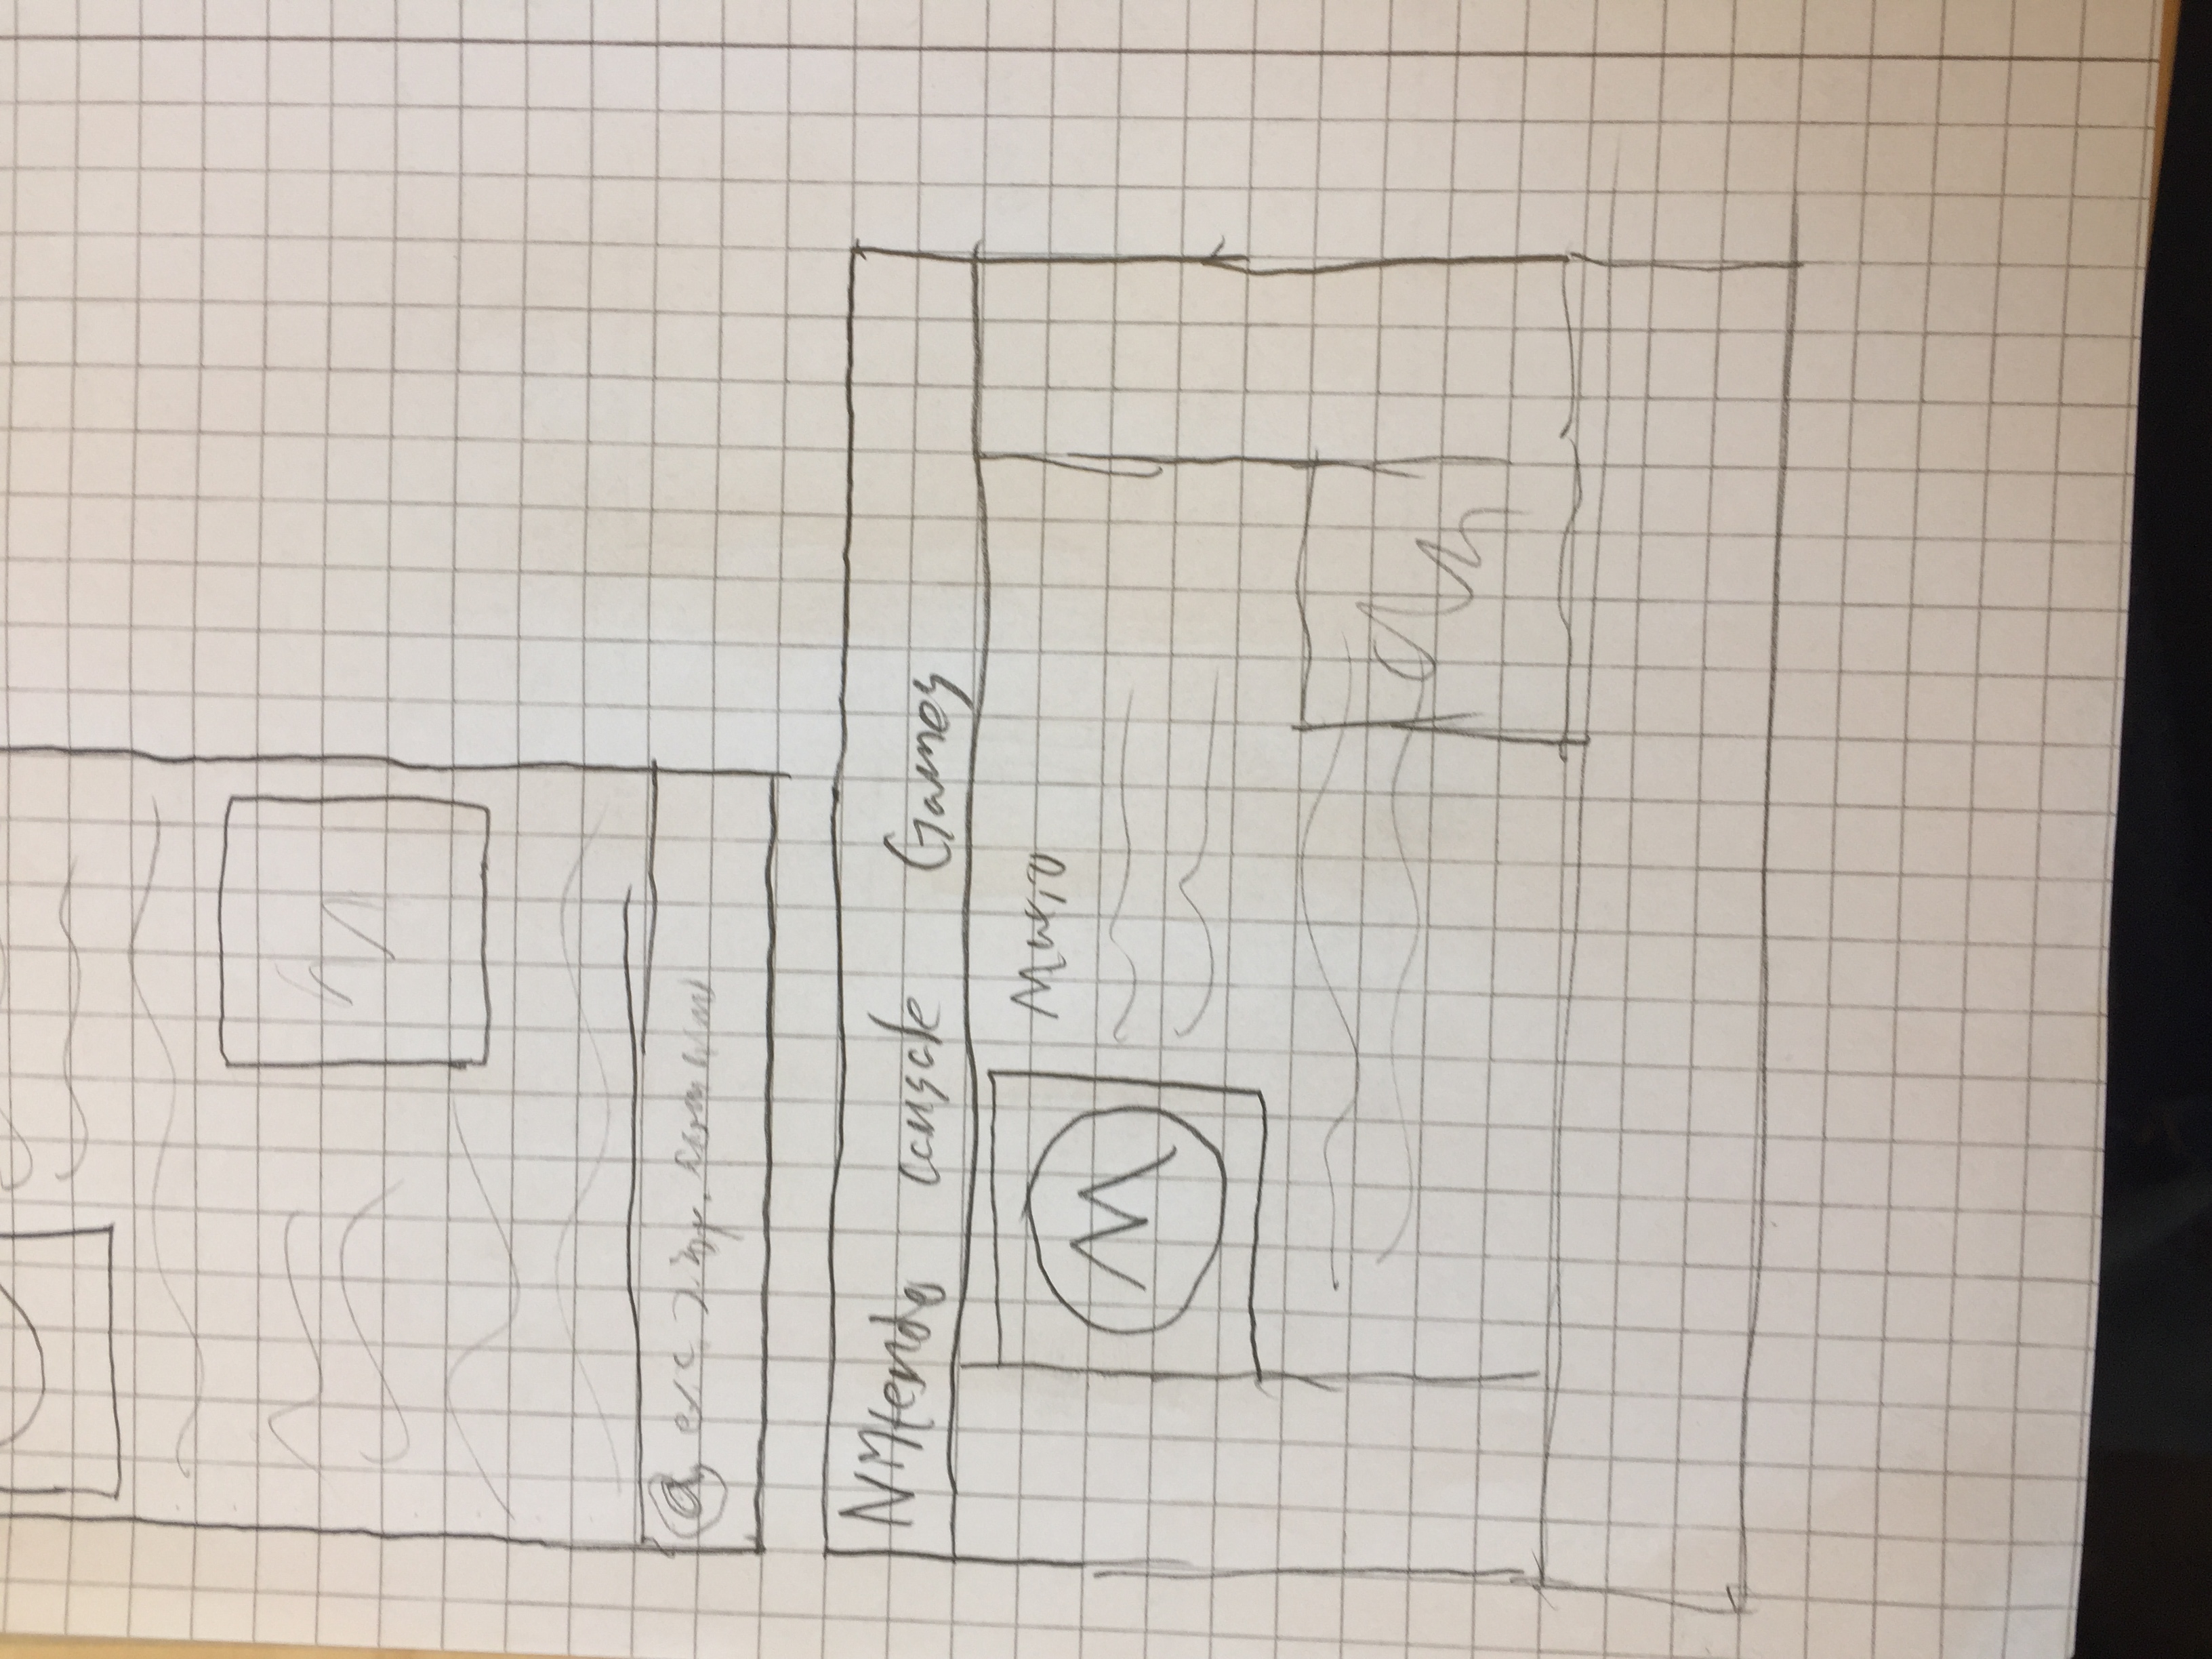 @
Nintendo console Games
Mario
M